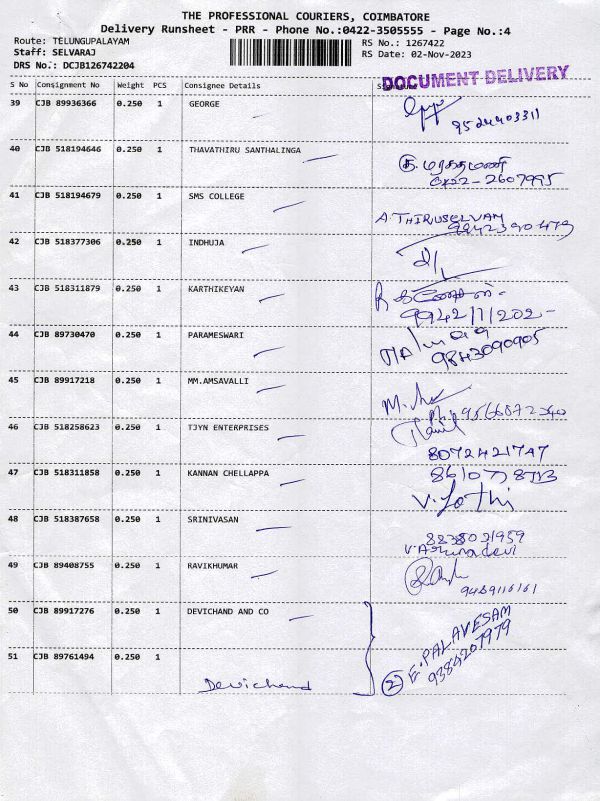 THE PROFESSIONAL COURIERS, COIMBATORE
Delivery Runsheet - PRR - Phone No.:0422-3505555 - Page No.:4
Route: TELUNGUPALAYAM RS No.: 1267422
Staff: SELVARAJ RS Date: 02-Nov-2023
DRS No.: DCJB126742204
DOCUMENT DELIVERY
S No Consignment No Weight PCS Consignee Details Signature
39 CJB 89936366 0.250 1 GEORGE
9524403311
40 CJB 518194646 0.250 1 THAVATHIRU SANTHALINGA
2607995
41 CJB 518194679 0.250 1 SMS COLLEGE A.THIRUSELVAM
42 CJB 518377306 0.250 1 INDHUJA
43 CJB 518311879 0.250 1 KARTHIKEYAN
44 CJB 89730470 0.250 1 PARAMESWARI
9843090905
45 CJB 89917218 0.250 1 MM.AMSAVALLI
9566872340
46 CJB 518258623 0.250 1 TJYN ENTERPRISES
8072421747
47 CJB 518311858 0.250 1 KANNAN CHELLAPPA
V. Jothi
48 CJB 518387658 0.250 1 SRINIVASAN
8838031959
49 CJB 89408755 0.250 1 RAVIKHUMAR
9489116161
50 CJB 89917276 0.250 1 DEVICHAND AND CO
E.PALAVESAM
9384207979
51 CJB 89761494 0.250 1
Devichand
2